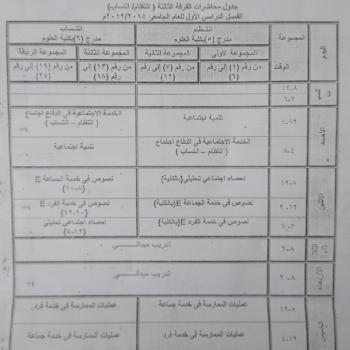 جدول محاضرات الفرقة الثالثة ( انتظام/ انتساب)
الفصل الدراسي الأول للعام الجامعي ٢٠١٩/٢٠١٨م
اليوم
المجموعة
الوقت
انتظام
مدرج (٥) بكلية العلوم
انتساب
مدرج (٦) بكلية العلوم
المجموعة الأولى
المجموعة الثانية
المجموعة الثالثة
المجموعة الرابعة
من رقم (١) إلى رقم (٦)
من رقم (٧) إلى رقم (١٢)
من رقم (١٣) إلى رقم (١٨)
من رقم (١٩) إلى رقم (٢٤)
١٢-٨
الأحد
٤-١٢
تنمية اجتماعية
الخدمة الاجتماعية في الدفاع اجتماع
( انتظام – انتساب )
٨-٤
الخدمة الاجتماعية في الدفاع اجتماع
( انتظام – انتساب )
تنمية اجتماعية
الاثنين
١٢-٨
احصاء اجتماعي تحليلي (بالكلية)
نصوص في خدمة الجماعة E
(١٠-٨)
٢-١٢
نصوص في خدمة الجماعة E (بالكلية)
نصوص في خدمة الفرد E
(١٢-١٠)
٤-٢
نصوص في خدمة الفرد E (بالكلية)
احصاء اجتماعي تحليلي
(٤-١٢)
٢-٨
تدريب ميداني
الأربعاء
٢-٨
تدريب ميداني
الخميس
١٢-٨
عمليات الممارسة في خدمة جماعة
عمليات الممارسة في خدمة فرد
٤-١٢
عمليات الممارسة في خدمة فرد
عمليات الممارسة في خدمة جماعة